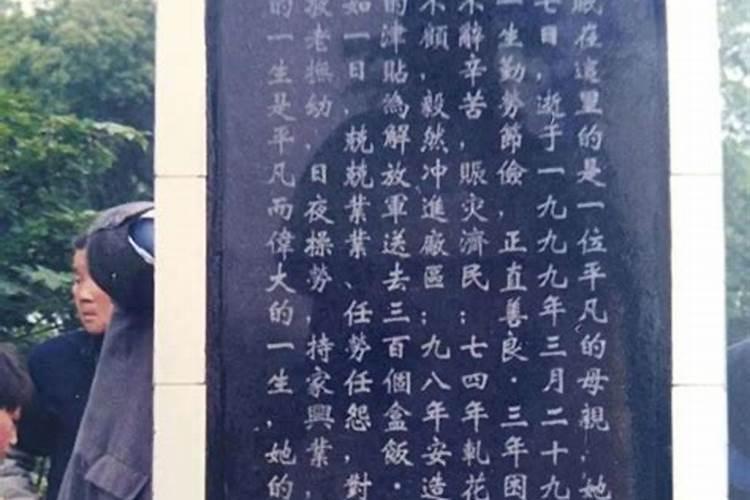 眠在這里的是一位平凡的母親，她
七日，逝于一九九九年三月二十九
一生勤勞節儉，正直善良．三年困
不辭辛苦，賑灾濟民；七四年軋花
不顧，毅然冲進廠區；九八年安造
的津貼為解放軍送去三百個盒飯．
如一日，兢兢業業、任勞任怨，對
敬老撫幼，日夜操勞，持家興業，
的一生是平凡而偉大的一生，她的